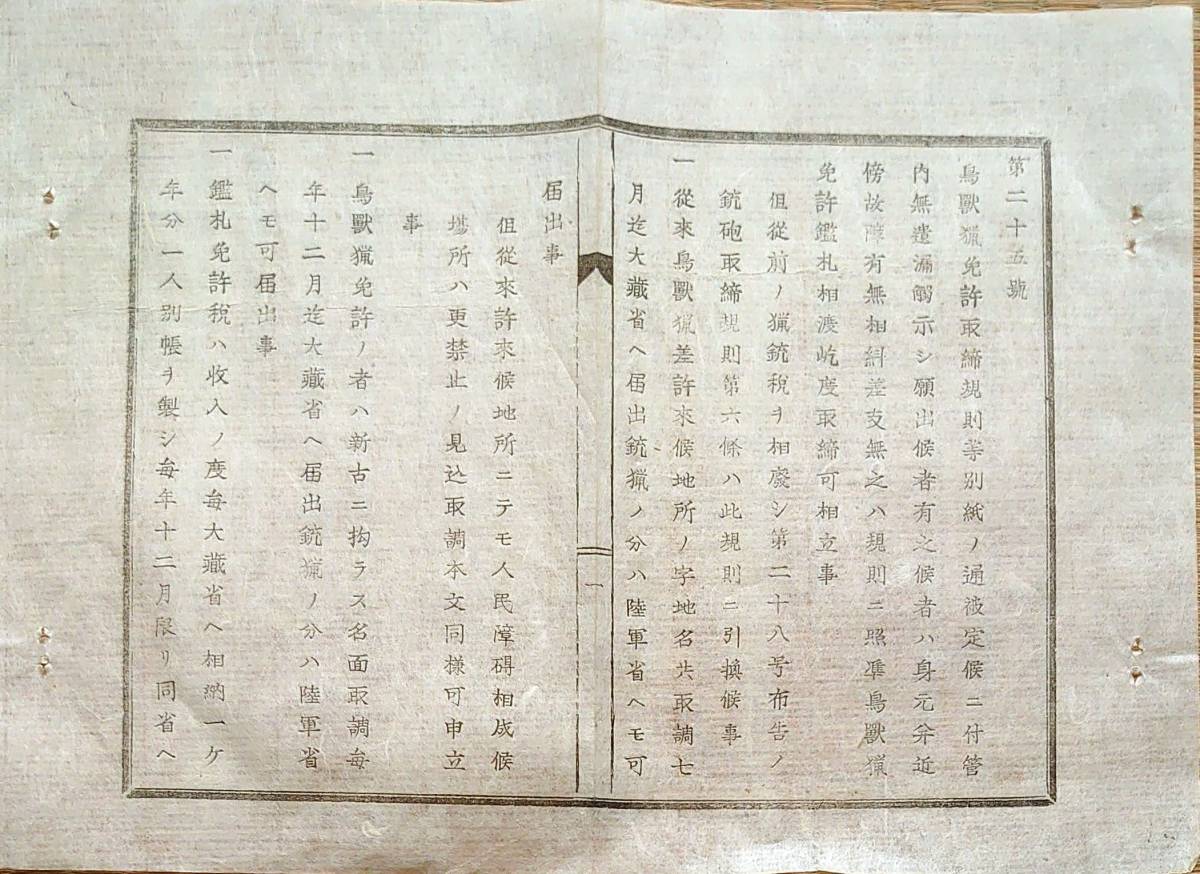 第二十五號
鳥獸猟免許取締規則等別紙ノ通被定候ニ付管
内無遺漏觸示シ願出候者有之候者ハ身元弁近
傍故障有無相糾差支無之ハ規則ニ照準鳥獸猟
免許鑑札相渡屹度取締可相立事
但從前ノ猟銃税ヲ相廢シ第二十八号布告ノ
銃砲取締規則第六條ハ此規則ニ引換候事
一從來鳥獸猟差許來候地所ノ字地名共取調七
月迄大藏省ヘ届出銃猟ノ分ハ陸軍省ヘモ可
一
届出事
但從來許來候地所ニテモ人民障碍相成候
塲所ハ更禁止ノ見込取調本文同様可申立
事
一鳥獸猟免許ノ者ハ新古ニ拘ラス名面取調每
年十二月迄大藏省ヘ届出銃猟ノ分ハ陸軍省
ヘモ可届出事
一鑑札免許税ハ收入ノ度每大藏省ヘ相納一ケ
年分一人別帳ヲ製シ每年十二月限リ同省ヘ